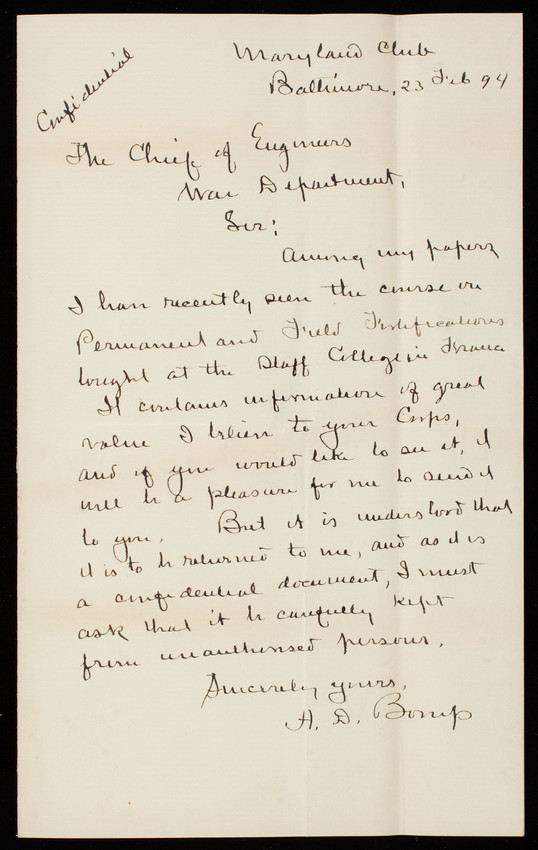 Confidential
Maryland Club
Baltimore, 23 Feb 94
The Chief of Engineers
War Department,
Sir:
Among my papers
I have recently seen the course on
Permanent and Field Fortifications
taught at the Staff College in France
It contains information of great
value I believe to your Corps,
and if you would like to see it, it
will be a pleasure for me to send it
to you. But it is understood that
it is to be returned to me, and as it is
a confidential document, I must
ask that it be carefully kept
from unauthorised persons.
Sincerely yours,
A. D.